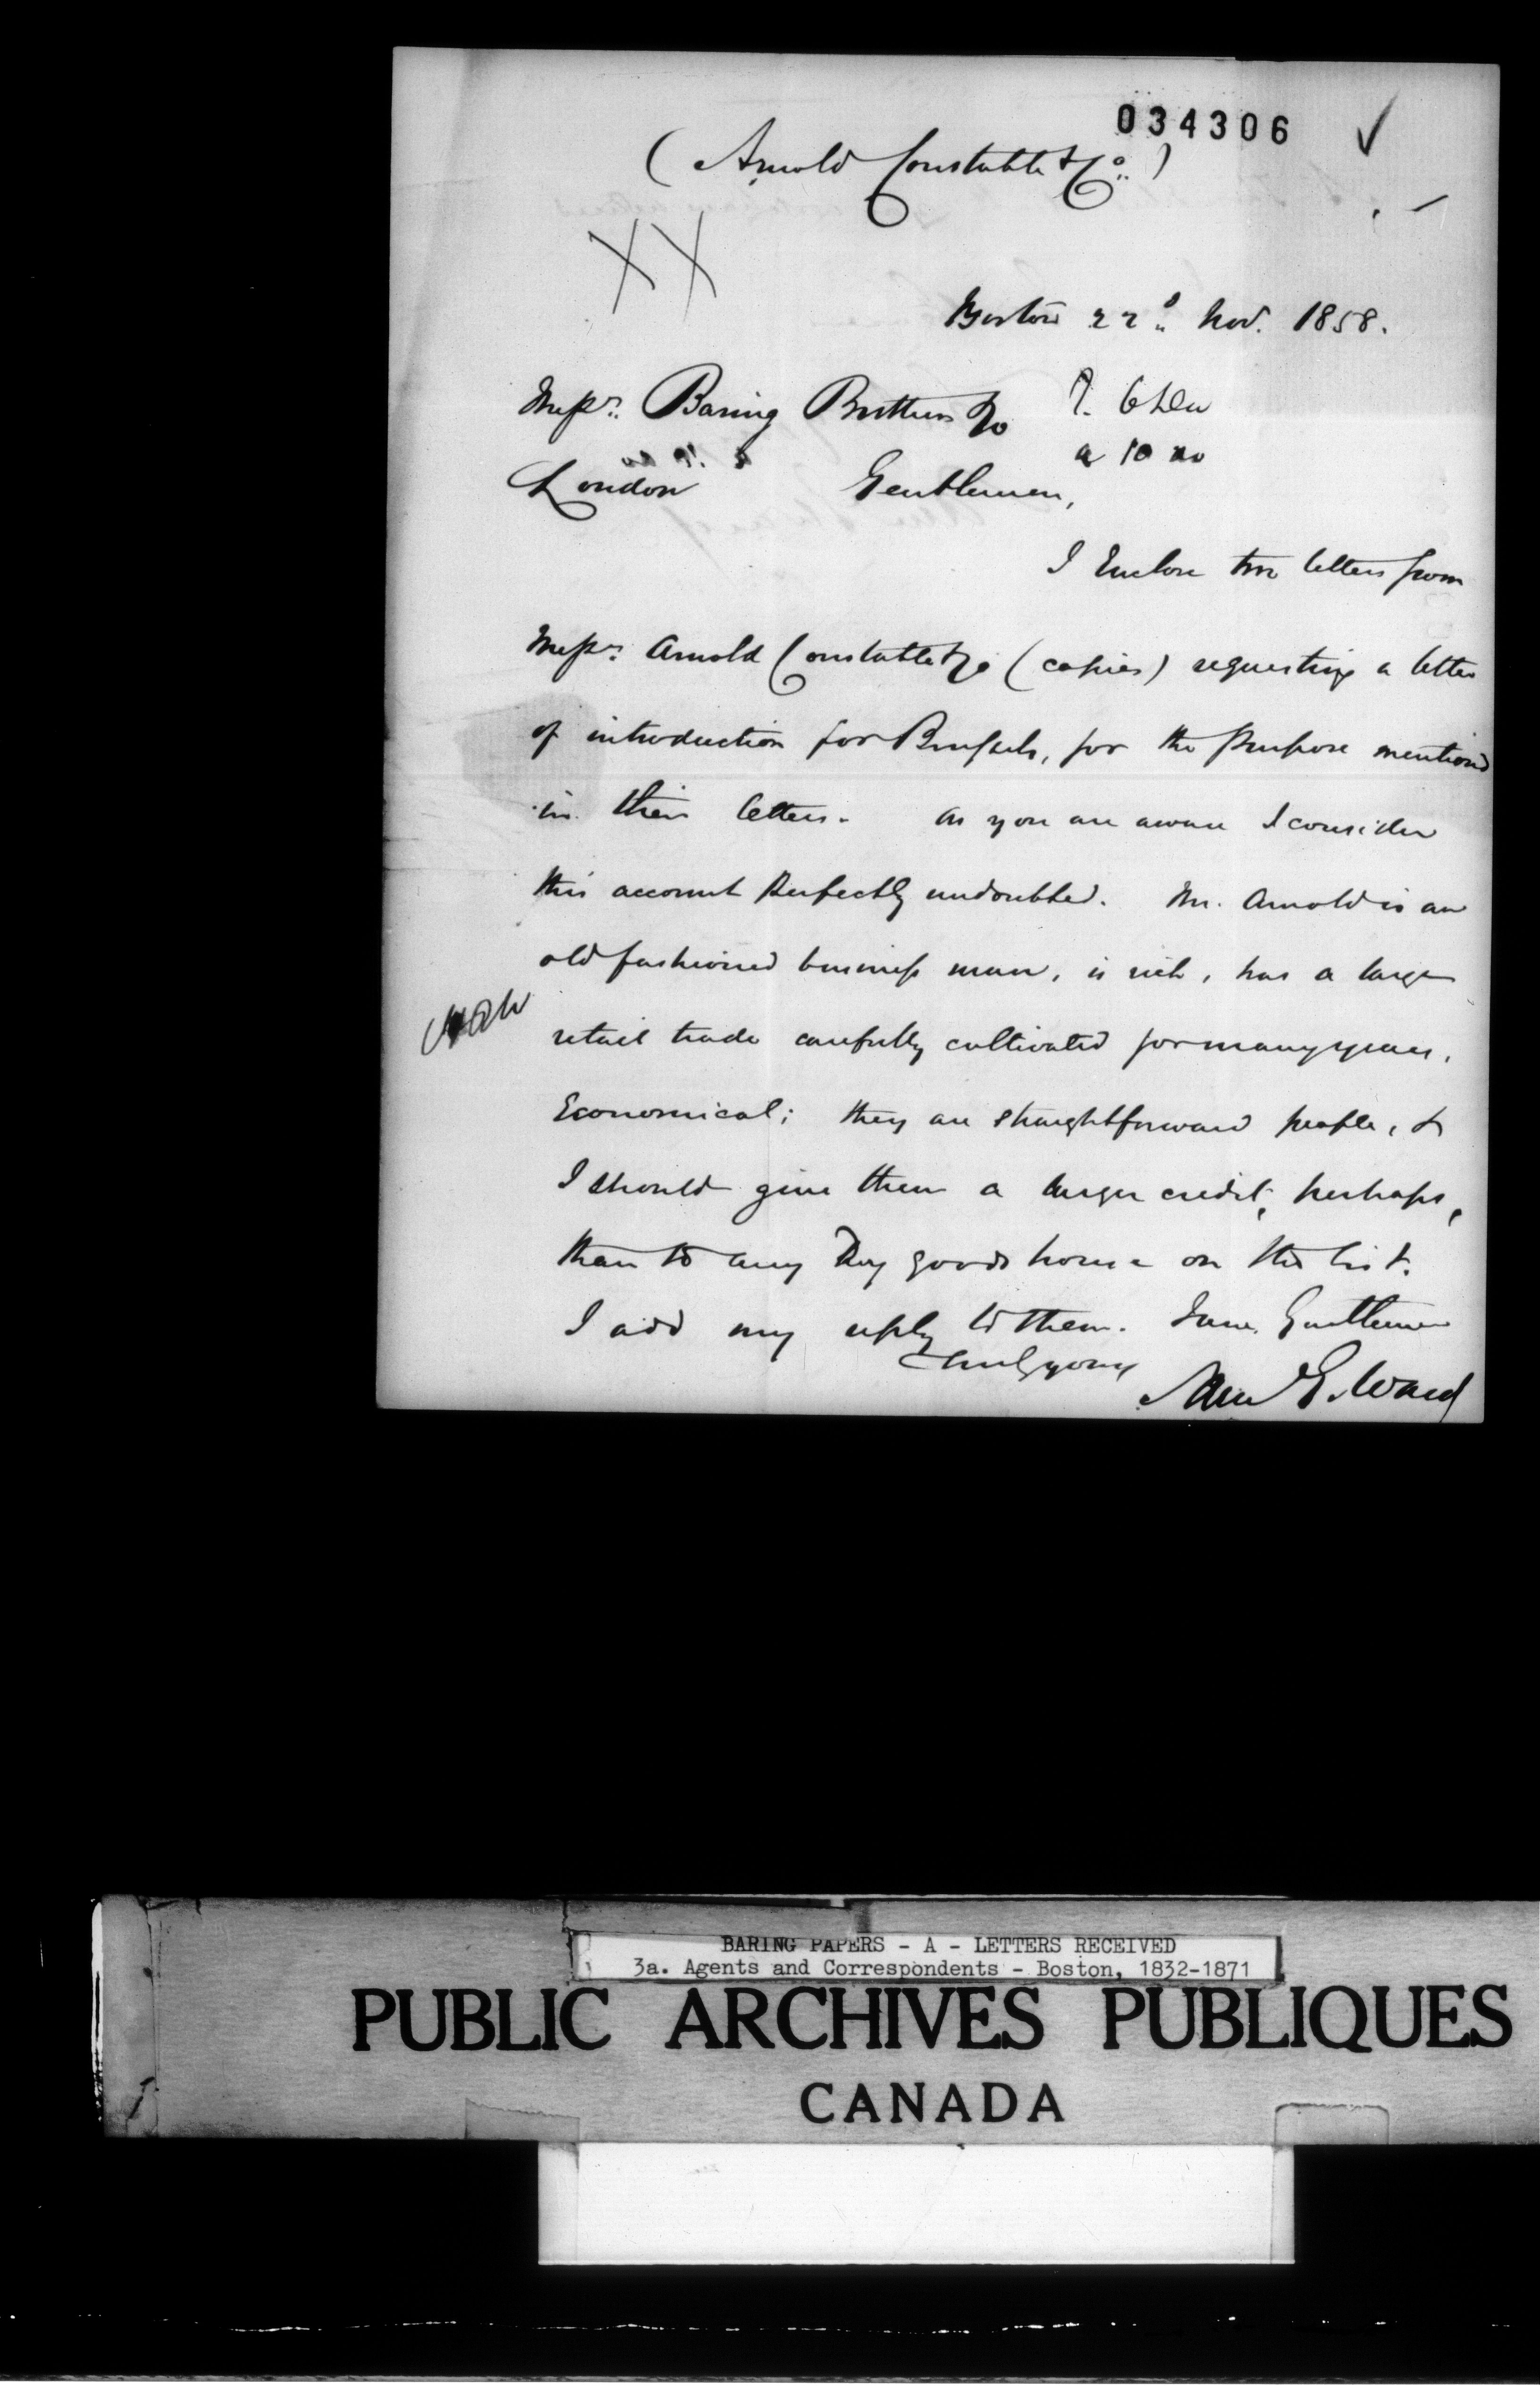 034306
(Arnold Constable & Co.)
XX
Boston 22d Nov. 1858.
Messrs. Baring Brothers & Co
R. 6 Dec
a 10 do
London Gentlemen,
I enclose two letters from
Messrs. Arnold Constable & Co (copies) requesting a letter
of introduction for Brussels, for the purpose mentioned
in their letters. As you are aware I consider
this account perfectly undoubted. Mr. Arnold is an
old fashioned business man, is rich, has a large
retail trade carefully cultivated for many years,
Economical; they are straightforward people, &
I should give them a larger credit, perhaps,
than to any Dry goods house on the list.
I add my reply to them. I am, Gentlemen
truly yours
Sam G. Ward
BARING PAPERS - A - LETTERS RECEIVED
3a. Agents and Correspondents - Boston, 1832-1871
PUBLIC ARCHIVES PUBLIQUES
CANADA